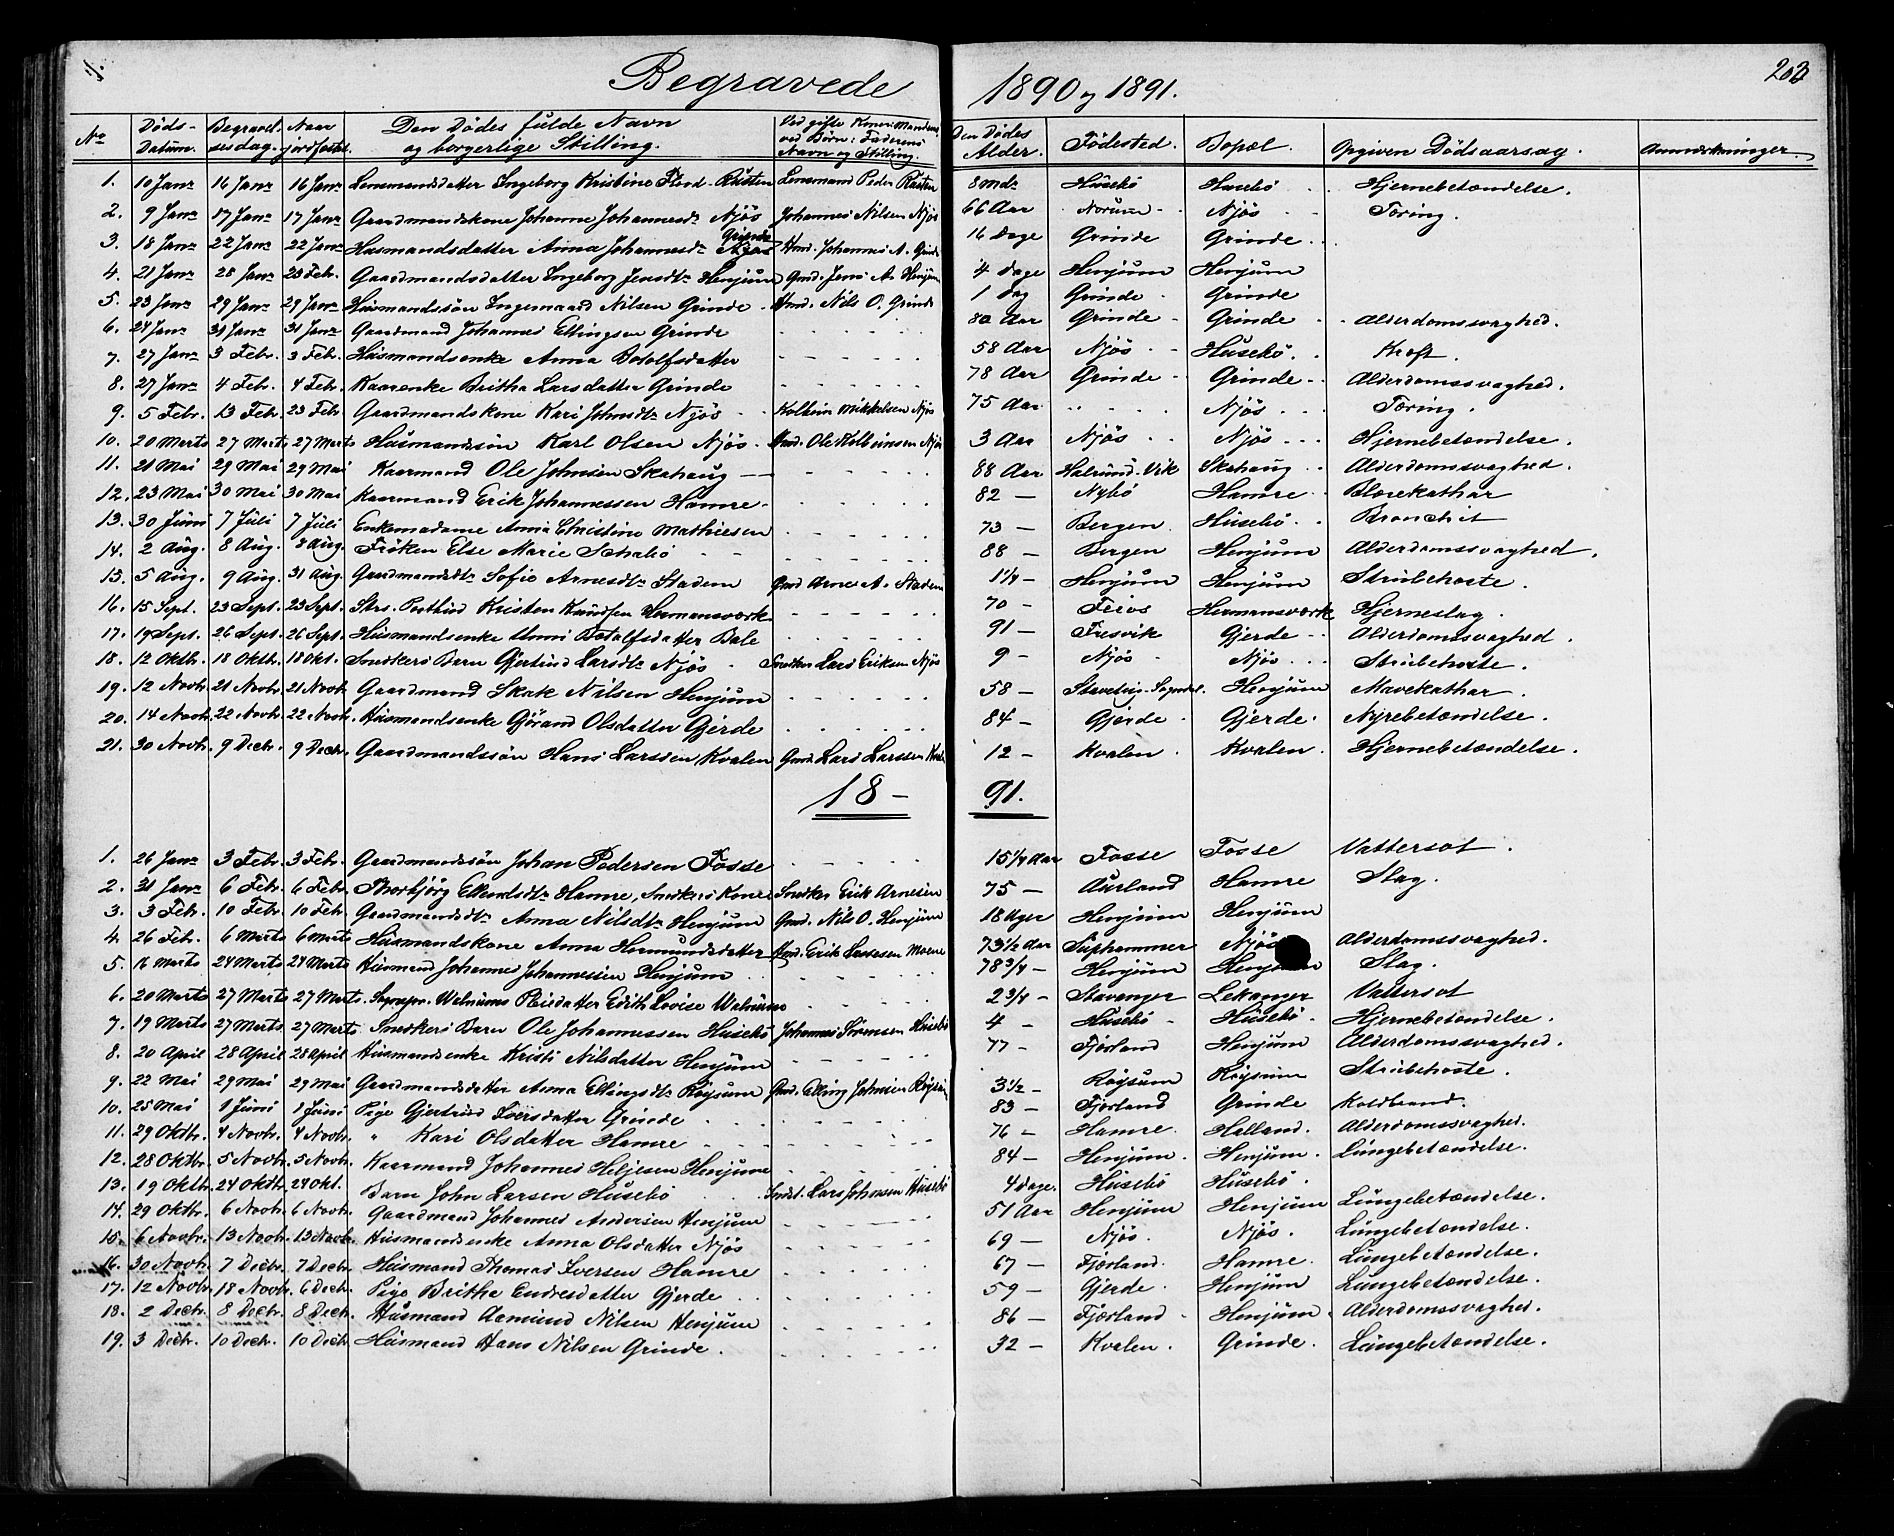 Begravede 1890 og 1891. 203
No Døds-Datum. Begravelsesdag. Naar jordfæstet. Den Dødes fulde Navn og borgerlige Stilling. Ved gifte Koner: Mandens ved Børn: Faderens Navn og Stilling. Den Dødes Alder. Fødested. Bopæl. Opgiven Dødsaarsag. Anmærkninger.
1. 10 Janr 16 Janr 16 Janr Lensmandsdatter Ingeborg Kristine Rusten Lensmand Peder Rusten 8 mdr Husebö Husebö Hjernebetændelse.
2. 9 Janr 17 Janr 17 Janr Gaardmandskone Johanne Johannesdr Njös Johannes Nilsen Njös 66 Aar Norum Njös Tæring.
3. 18 Janr 22 Janr 22 Janr Husmandsdatter Anna Johannesdr Grinde Hmd. Johannes A. Grinde 16 Dage Grinde Grinde
4. 21 Janr 28 Janr 23 Feb. Gaardmandsdatter Ingeborg Jensdtr Henjum Gmd. Jens A. Henjum 4 Dage Henjum Henjum
5. 23 Janr 29 Janr 29 Janr Husmandssön Ingemand Nilsen Grinde Hmd. Nils O. Grinde 1 Dag Grinde Grinde
6. 24 Janr 31 Janr 31 Janr Gaardmand Johannes Ellingsen Grinde 80 Aar Grinde Grinde Alderdomssvaghed.
7. 27 Janr 3 Febr. 3 Febr. Husmandsenke Anna Botolfsdatter 58 Aar Njös Husebö. Kræft.
8. 27 Janr 4 Febr. 4 Febr. Kaarenke Britha Larsdatter Grinde 78 Aar Grinde Grinde Alderdomssvaghed.
9. 5 Febr. 13 Febr. 23 Febr. Gaardmandskone Kari Johnsdtr Njös Kolbein Mikkelsen Njös 75 Aar Njös Tæring.
10. 20 Marts 27 Marts 27 Marts Husmandssön Karl Olsen Njös. Hmd. Ole Kolbeinsen Njös 3 Aar Njös Njös Hjernebetændelse.
11. 21 Mai 29 Mai 29 Mai Kaarmand Ole Johnsen Skahaug 88 Aar Vik Skahaug Alderdomssvaghed.
12. 23 Mai 30 Mai 30 Mai Kaarmand Erik Johannessen Hamre 82 — Nybö Hamre Blærekathar
13. 30 Juni 7 Juli 7 Juli Enkemadame Anna Christine Mathiesen 73 — Bergen Husebö Bronchit
14. 2 Aug. 8 Aug. 8 Aug. Fröken Else Marie 88 — Bergen Henjum Alderdomssvaghed.
15. 5 Aug. 9 Aug. 31 Aug. Gaardmandsdtr Sofie Arnesdtr Stadem Gmd Arne A. Stadem 1 1/4 — Henjum Henjum Strubehoste.
16. 15 Sept. 23 Sept. 23 Sept. Kristen Knudsen Hermansværk 70 — Feios Hermansværk Hjerneslag.
17. 19 Sept. 26 Sept. 26 Sept. Husmandsenke Unni Botolfsdatter Bale 91 — Fresvik Gjerde Alderdomssvaghed.
18. 12 Oktb. 18 Oktb. 18 Okt. Snedkers Barn Gjertrud Larsdtr Njös Snedker Lars Eriksen Njös 9 — Njös Njös Strubehoste.
19. 12 Novb. 21 Novbr. 21 Novb. Gaardmand Skak Nilsen Henjum 58 — Staveteig Sogndal. Henjum Mavekathar.
20. 14 Novb. 22 Novb. 22 Novb. Husmandsenke Gjöran Olsdatter Gjerde 84 — Gjerde Gjerde Nyrebetændelse.
21. 30 Novb. 9 Decbr. 9 Decbr. Gaardmandssön Hans Larssen Kvalen Gmd. Lars Larssen 12 — Kvalen Kvalen. Hjernebetændelse.
18 — 91.
1. 26 Janr 3 Febr. 3 Febr. Gaardmandssön Johan Pedersen Fosse 15 1/4 Aar Fosse Fosse Vattersot.
2. 31 Janr 6 Febr. 6 Febr. Thorbjörg Ellendsdtr Hamre, Snedkers Kone Snedker Erik Arnesen 75 — Aurland Hamre Slag.
3. 3 Feb. 10 Feb. 10 Feb. Gaardmandsdtr Anna Nilsdtr Henjum Gmd. Nils O. Henjum 18 Uger Henjum Henjum
4. 26 Feb. 6 Marts 6 Marts Husmandskone Anna Hermundsdatter Hmd. Erik Larssen Moene 73 1/2 Aar Suphammer Njös Alderdomssvaghed.
5. 16 Marts 24 Marts 24 Marts Husmand Johannes Johannessen Henjum 78 3/4 — Henjum Henjum Slag.
6. 20 Marts 27 Marts 27 Marts. Sognepr. Walnums Pleiedatter Edith Lovise Walnum 2 3/4 — Stavanger Lekanger Vattersot
7. 19 Marts 27 Marts 27 Marts. Snedkers Barn Ole Johannessen Husebö Johannes Husebö 4 — Husebö Husebö. Hjernebetændelse.
8. 20 April 28 April 28 April Husmandsenke Kristi Nilsdatter Henjum 77 — Fjærland Henjum Alderdomssvaghed.
9. 22 Mai 29 Mai 29 Mai Gaardmandsdatter Anna Ellingsdtr Röysum Gmd. Elling Johnsen Röysum 3 1/2 — Röysum Röysum Strubehoste.
10. 25 Mai 1 Juni 1 Juni Pige Gjertrud Iversdatter Grinde 83 — Fjærland Grinde Koldbrand.
11. 29 Oktb. 4 Novb. 4 Novb. „ Kari Olsdatter Hamre 76 — Hamre. Halland. Alderdomssvaghed.
12. 28 Oktbr. 5 Novb. 5 Novb. Kaarmand Johannes Heljesen Henjum 84 — Henjum. Henjum. Lungebetændelse.
13. 19 Oktb. 24 Oktb. 24 Okt. Barn John Larsen Husebö Lars Johnsen Husebö 4 Dage. Husebö Husebö.
14. 29 Oktbr. 6 Novb. 6 Novb. Gaardmand Johannes Andersen Henjum 51 Aar Henjum Henjum Lungebetændelse.
15. 6 Novbr. 13 Novb. 13 Novb. Husmandsenke Anna Olsdatter Njös 69 — Njös. Njös. Lungebetændelse.
16. 30 Novb. 7 Decbr. 7 Decbr. Husmand Thomas Iversen Hamre 67 — Fjærland. Hamre. Lungebetændelse.
17. 12 Novb. 18 Novb. 6 Decbr. Pige Britha Endresdatter Gjerde 59 — Gjerde Henjum Lungebetændelse.
18. 2 Decbr. 8 Decbr. 8 Decbr. Husmand Aamund Nilsen Henjum 86 — Fjærland Henjum Alderdomssvaghed.
19. 3 Decbr. 10 Decbr. 10 Decbr Husmand Hans Nilsen Grinde. 32 — Kvalen. Grinde. Lungebetændelse.